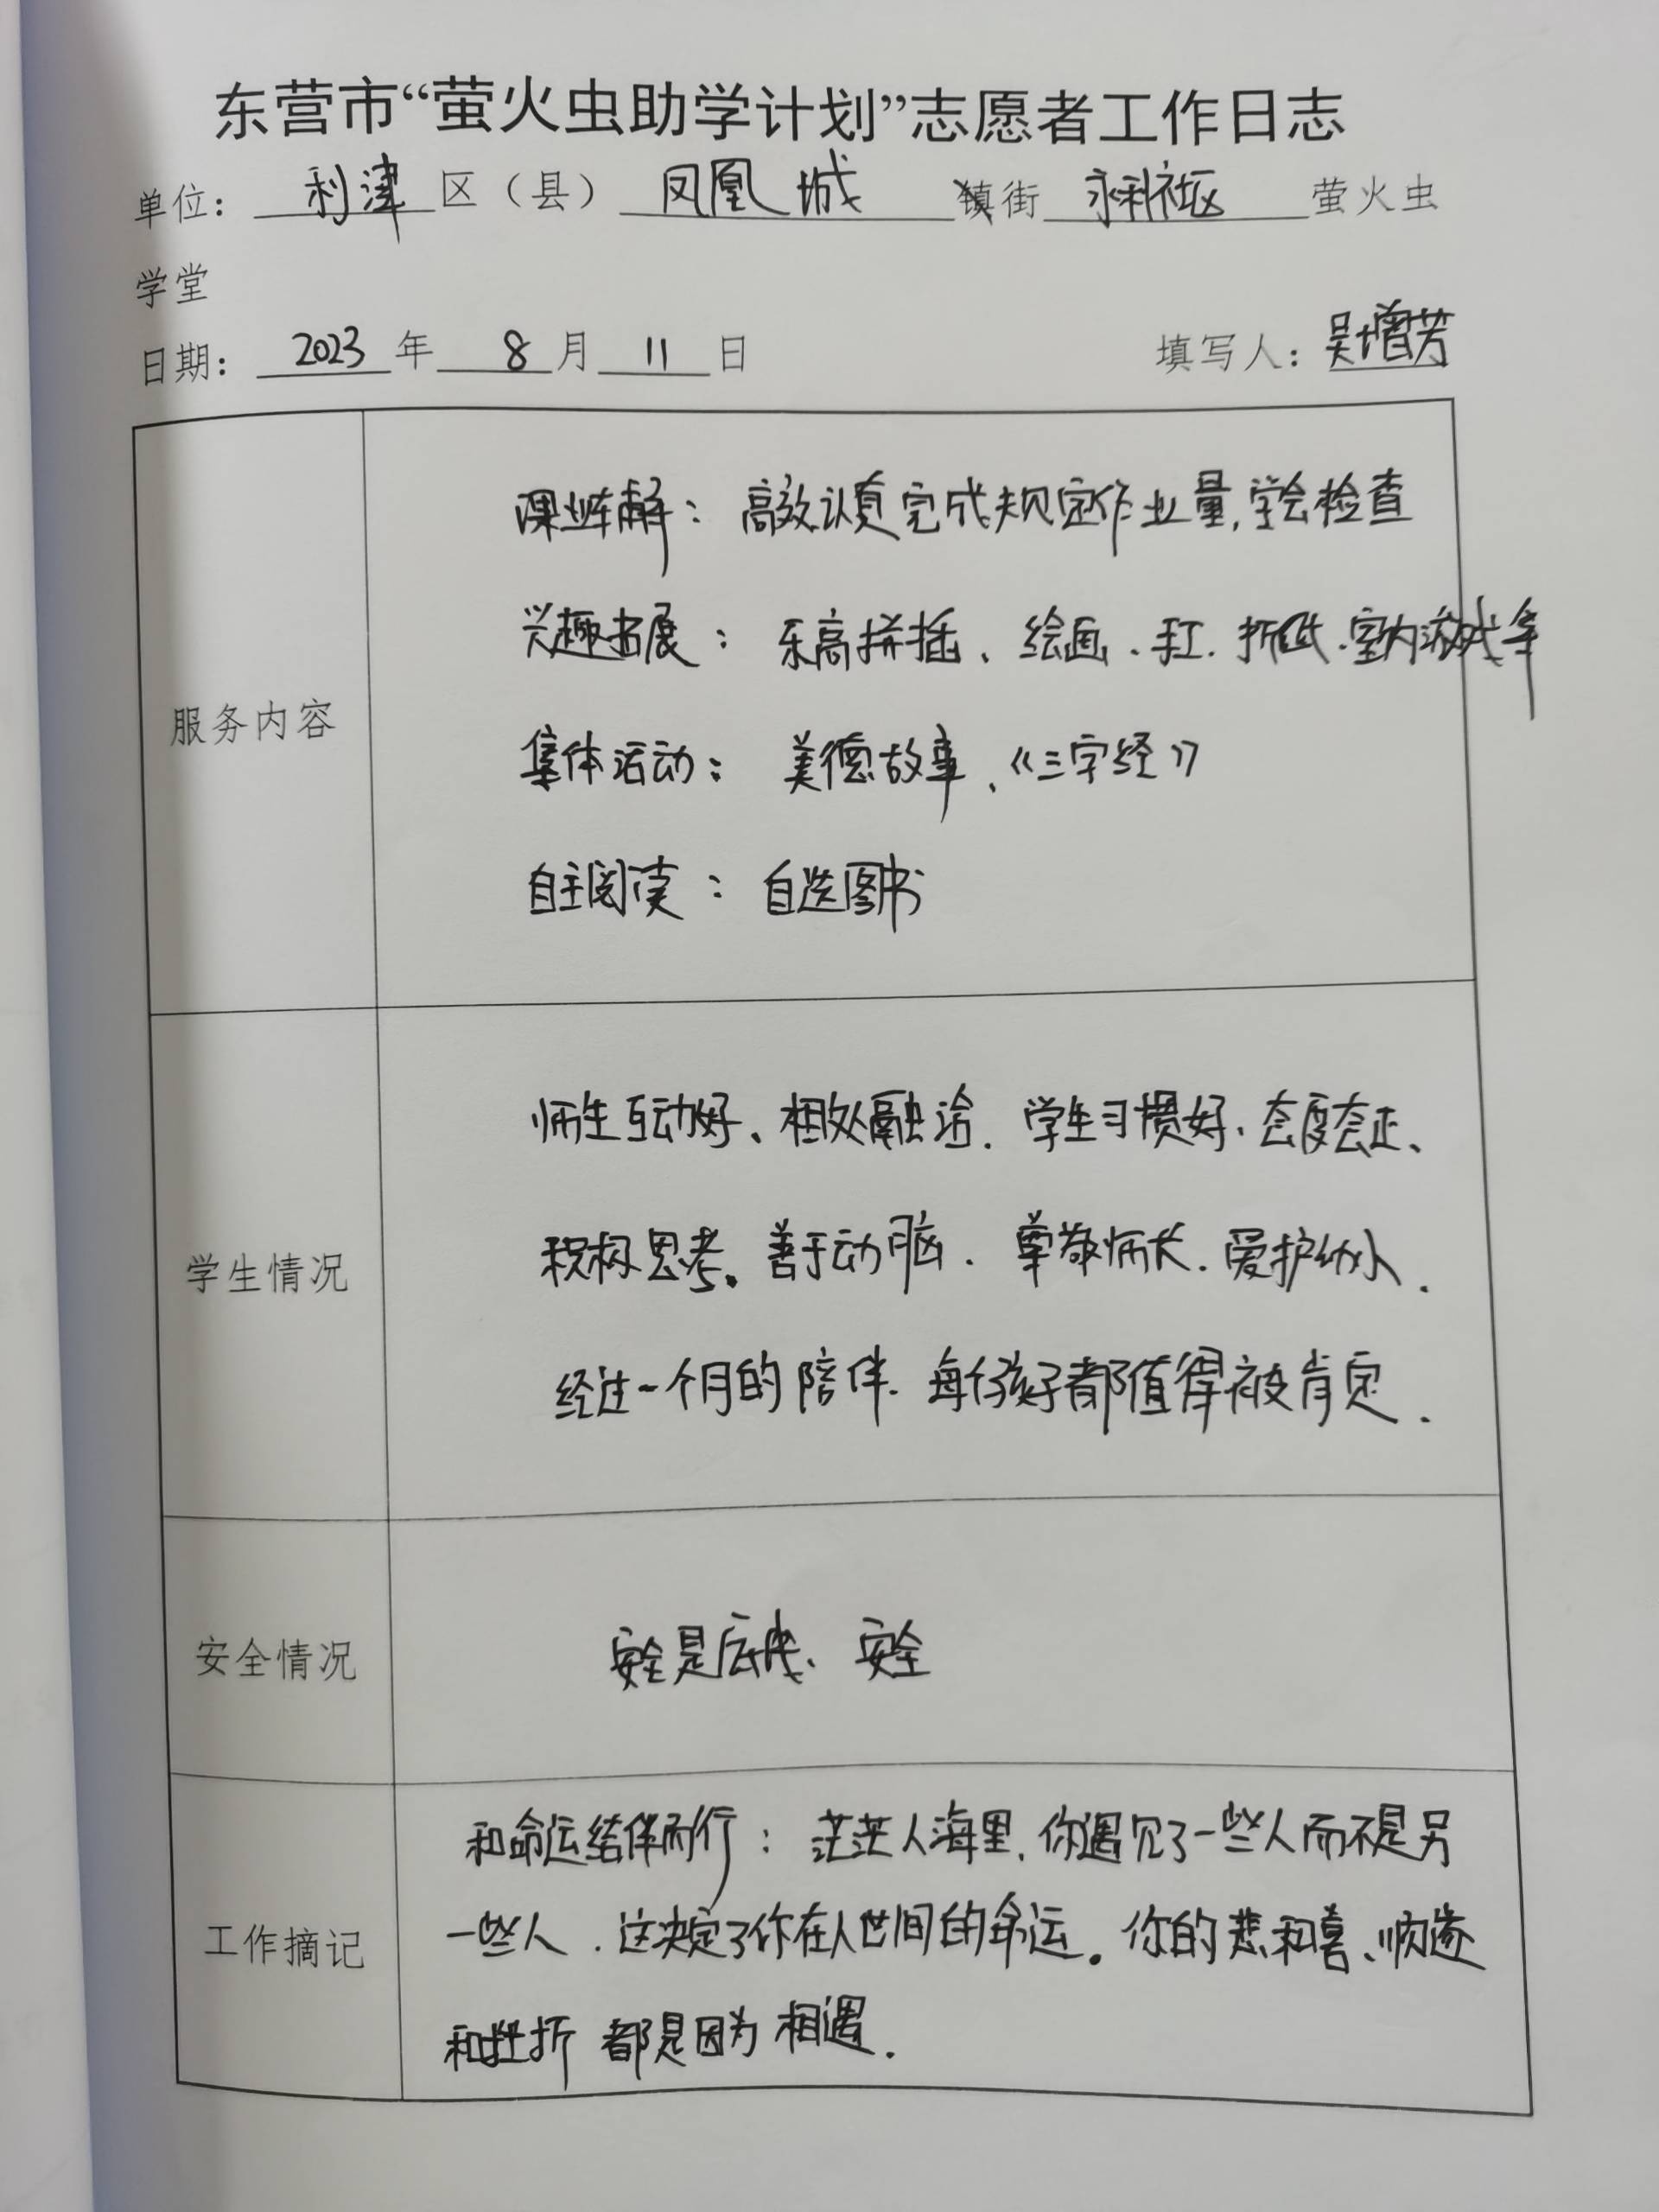 东营市“萤火虫助学计划”志愿者工作日志
单位： 利津 区（县） 凤凰城 镇街 永利社区 萤火虫
学堂
日期： 2023 年 8 月 11 日 填写人：吴增芳
服务内容
课业辅导：高效认真完成规定作业量，学会检查
兴趣拓展：乐高拼插、绘画、手工、折纸、室内游戏等
集体活动：美德故事、《三字经》
自主阅读：自选图书
学生情况
师生互动好、相处融洽．学生习惯好、态度态正、
积极思考。善于动脑．尊敬师长．爱护幼小．
经过一个月的陪伴．每个孩子都值得被肯定．
安全情况
安全是底线、安全
工作摘记
和命运结伴而行：茫茫人海里，你遇见了一些人而不是另
一些人．这决定了你在人世间的命运。你的悲和喜、顺遂
和挫折 都是因为相遇．